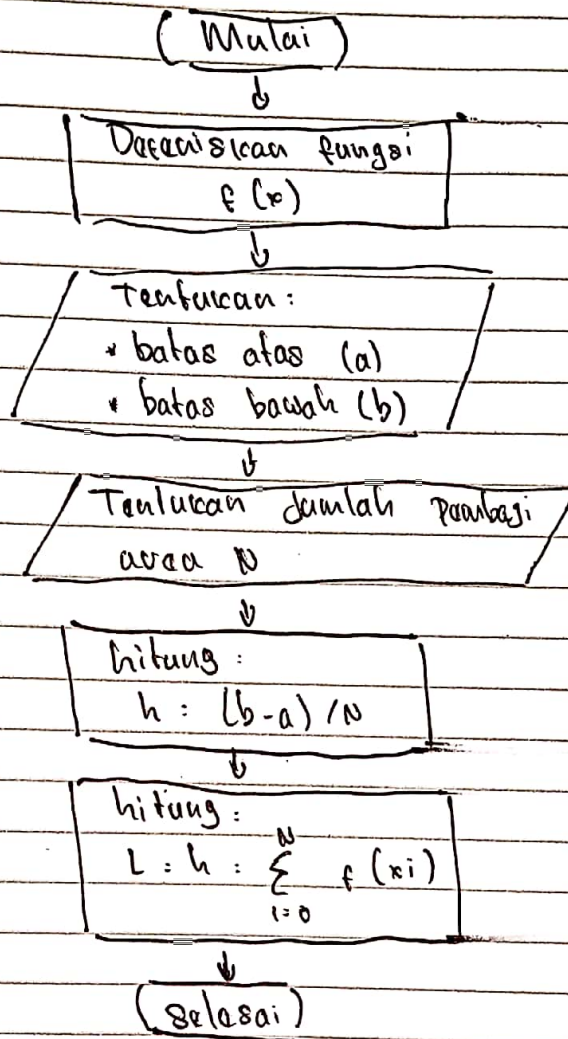 (Mulai)
Defenisikan fungsi
f(x)
Tentukan:
* batas atas (a)
* batas bawah (b)
Tentukan Jumlah Pembagi
area N
hitung :
h : (b-a) / N
hitung :
N
L : h : Σ f(xi)
i=0
(Selesai)